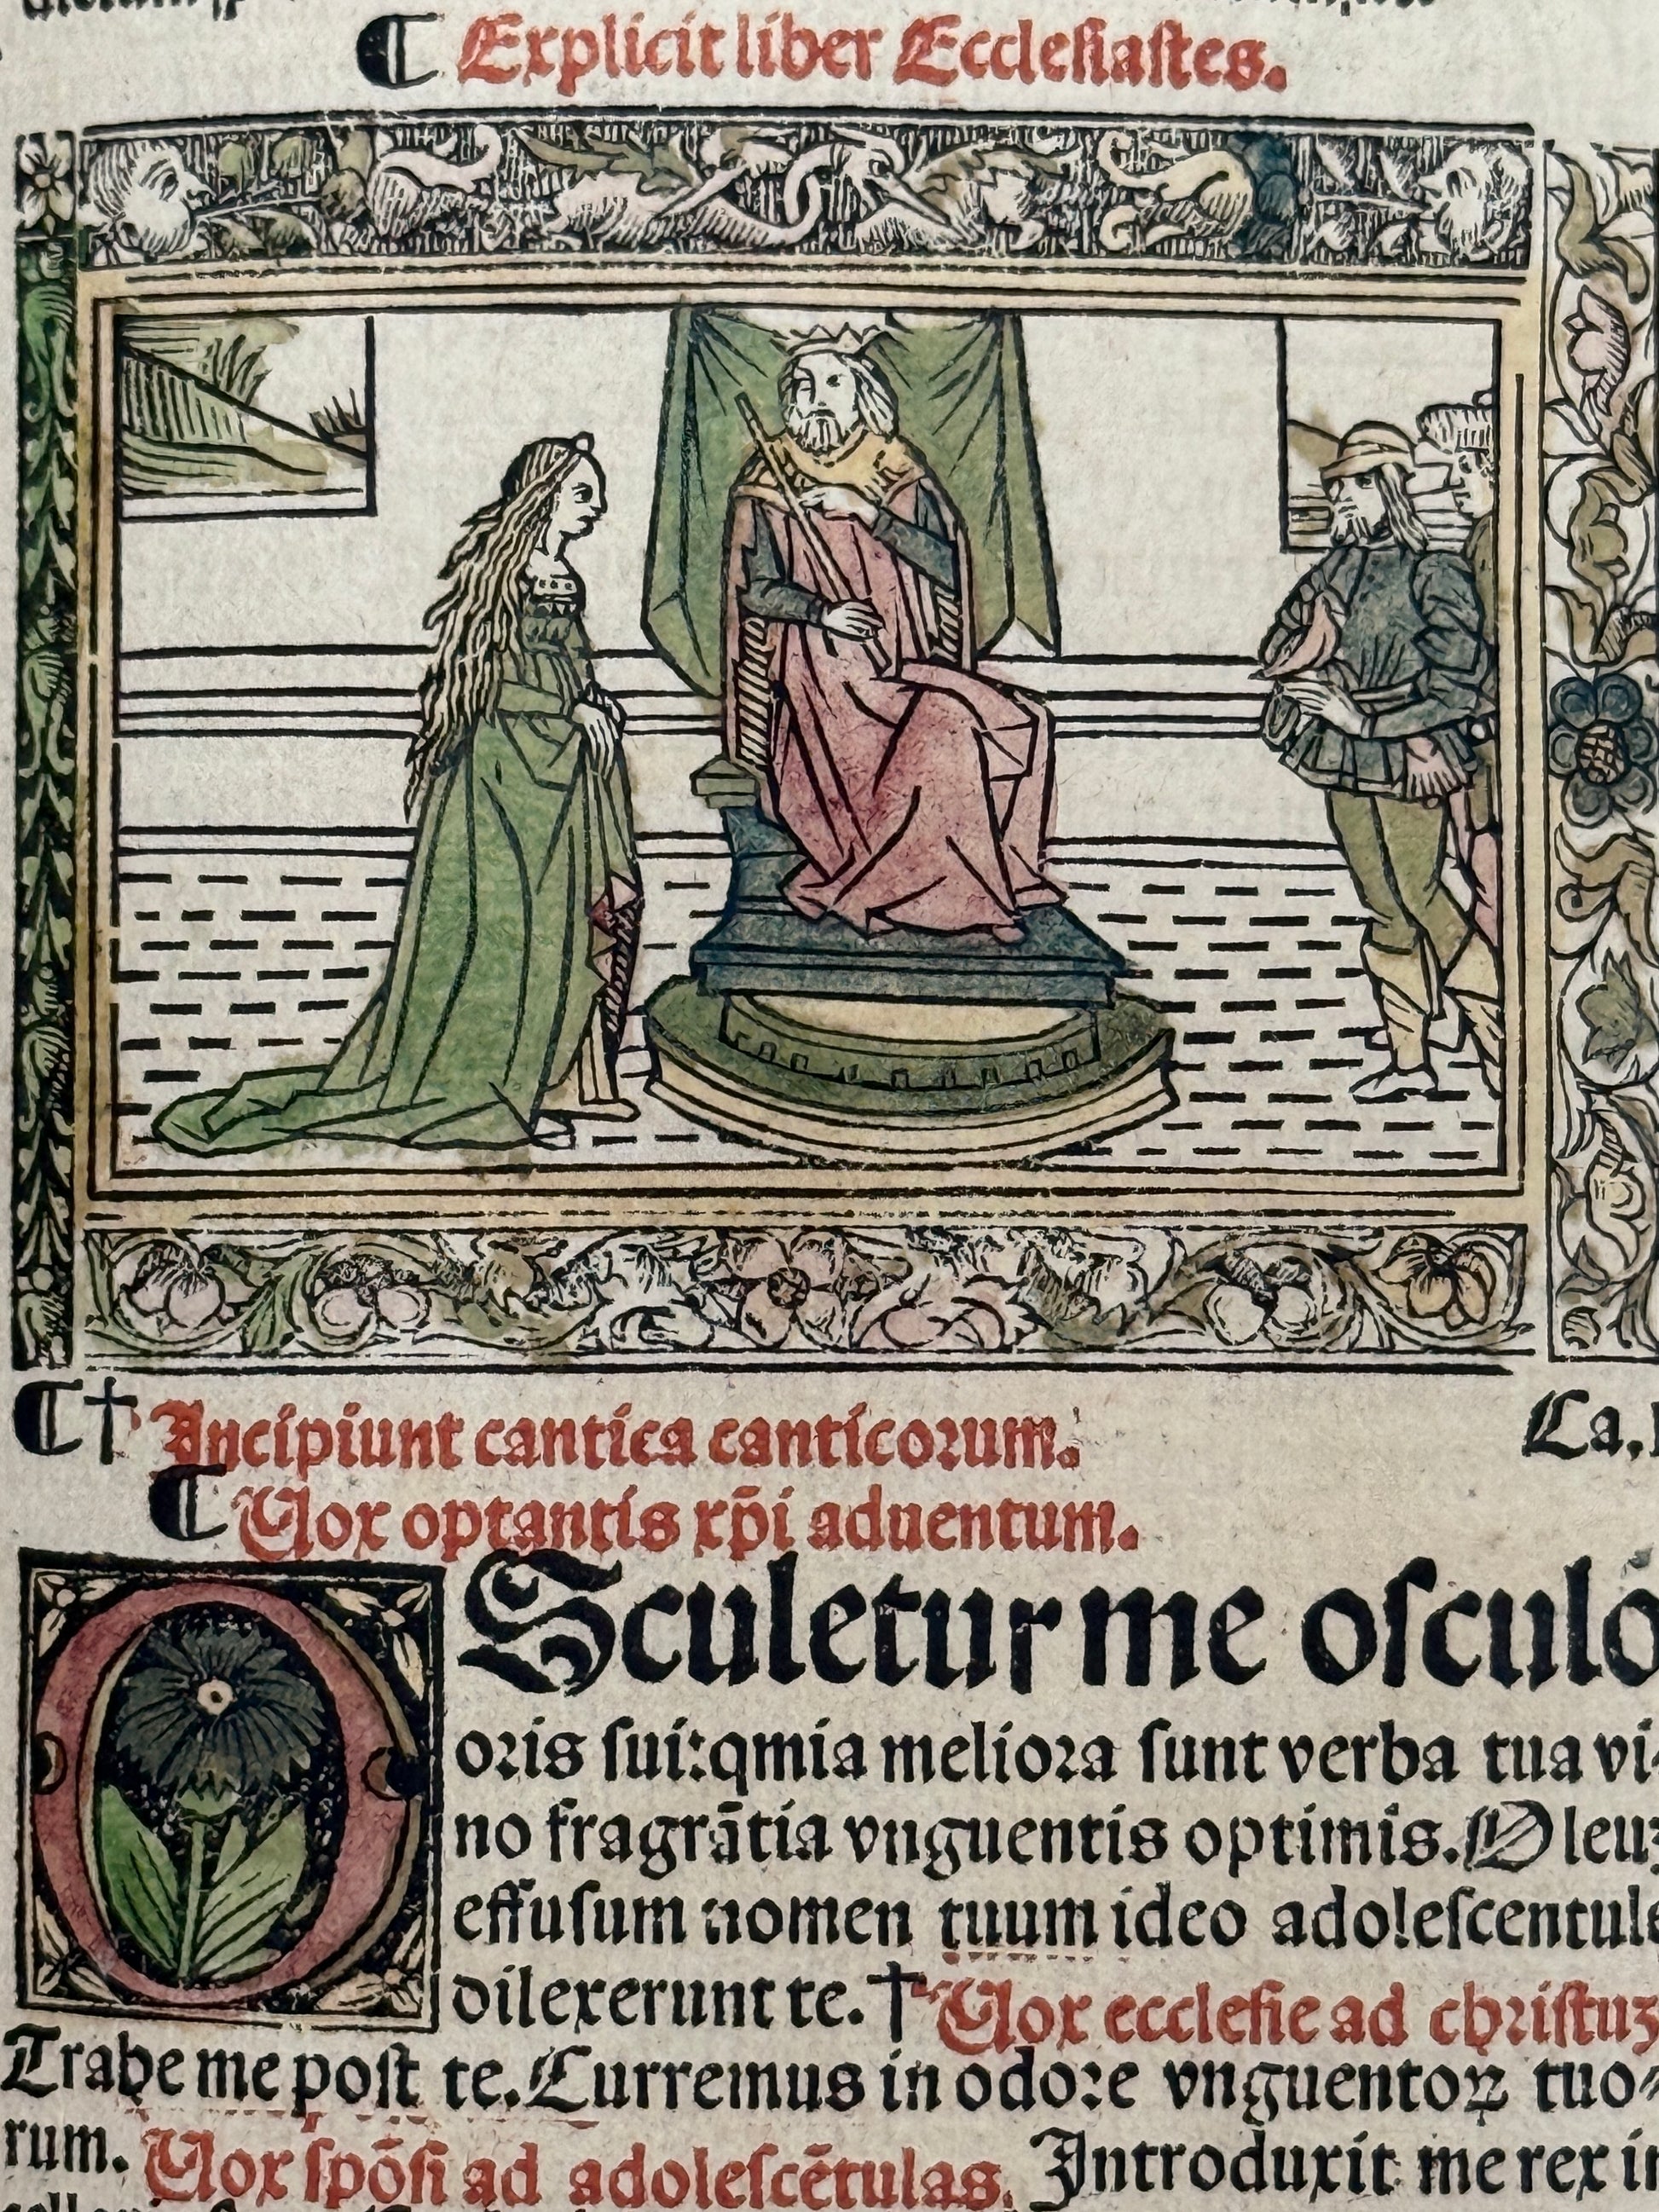 ¶ Explicit liber Ecclesiastes.
¶ † Incipiunt cantica canticorum. Ca.
¶ Uox optantis xp̄i aduentum.
OSculetur me osculō
oris sui:qmia meliora sunt verba tua vi-
no fragrātia vnguentis optimis. Oleuʒ
effusum nomen tuum ideo adolescentule
dilexerunt te. † Uox ecclesie ad christuʒ
Trahe me post te. Curremus in odore vnguentoꝝ tuo-
rum. Uox spōsi ad adolescētulas. Introduxit me rex in